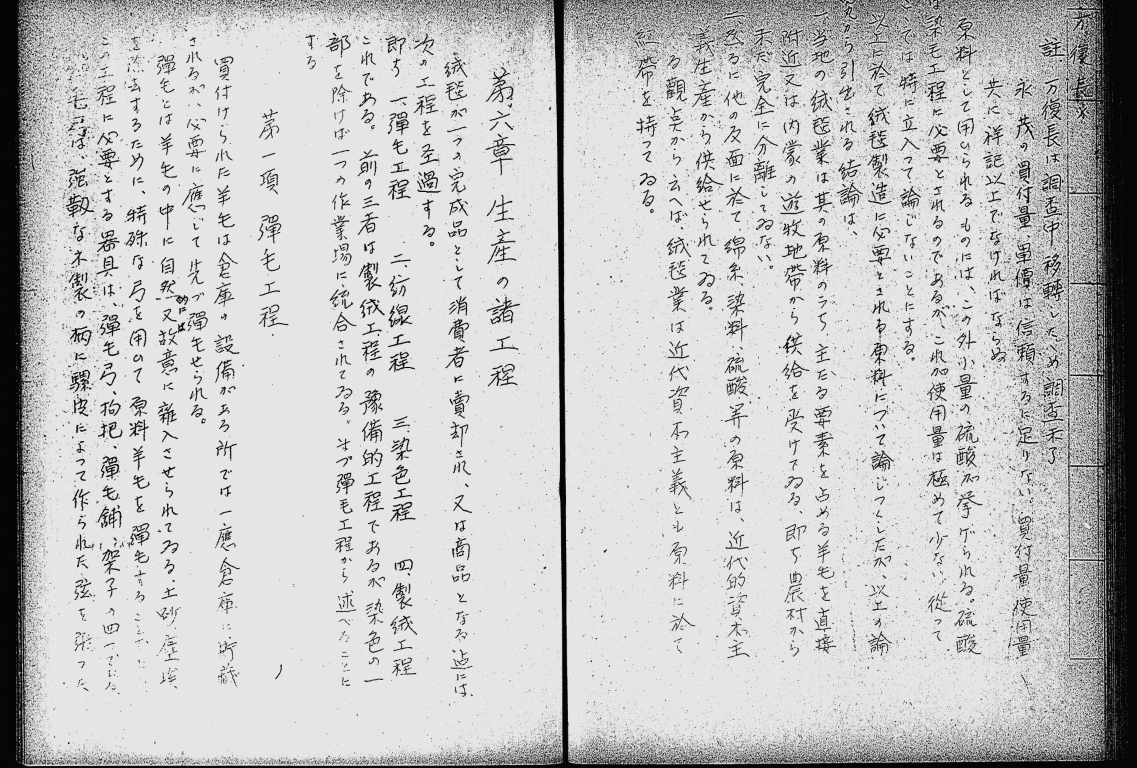 万復長
註 万復長は調査中、移轉したため調査未了
永茂の買付量、単價は、信頼するに足りない。買付量、使用量
共に祥記以上でなければならぬ
原料として用ひられるものには、この外小量の硫酸が挙げられる。硫酸
は染毛工程に必要とされるのであるが、これが使用量は極めて少ない、從って
ては特に立入って論じないことにする。
以上に於て絨毯製造に必要とされる原料について論じつくしたが、以上の論
から引出される結論は、
一、当地の絨毯業は其の原料のうち主たる要素を占める羊毛を直接
附近又は内蒙の遊牧地帶から供給を受けてゐる、即ち農村から
未だ完全に分離してゐない。
二、然るに他の反面に於て綿糸、染料、硫酸等の原料は、近代的資本主
義生産から供給せられてゐる。
る觀点から云へば、絨毯業は近代資本主義とも原料に於て
帶を持ってゐる。
第六章 生産の諸工程
絨毯が一つの完成品として消費者に賣却され、又は商品となる迄には、
次の工程を経過する。
即ち 一、彈毛工程 二、紡線工程 三、染色工程 四、製絨工程
これである。前の三者は製絨工程の豫備的工程であるが染色の一
部を除けば一つの作業場に統合されてゐる。先づ彈毛工程から述べることに
する
第一項 彈毛工程
買付けられた羊毛は倉庫の設備がある所では一應倉庫に貯藏
されるが、必要に應じて先づ彈毛せられる。
彈毛とは羊毛の中に自然的に又は故意に雜入させられてゐる、土砂塵埃
を除去するために、特殊な弓を用ひて原料羊毛を彈毛することで
この工程に必要とする器具は、彈毛弓、拘把、彈毛舗、架子の四つである
彈毛弓は、強靱な木製の柄に騾皮によって作られた弦を張った